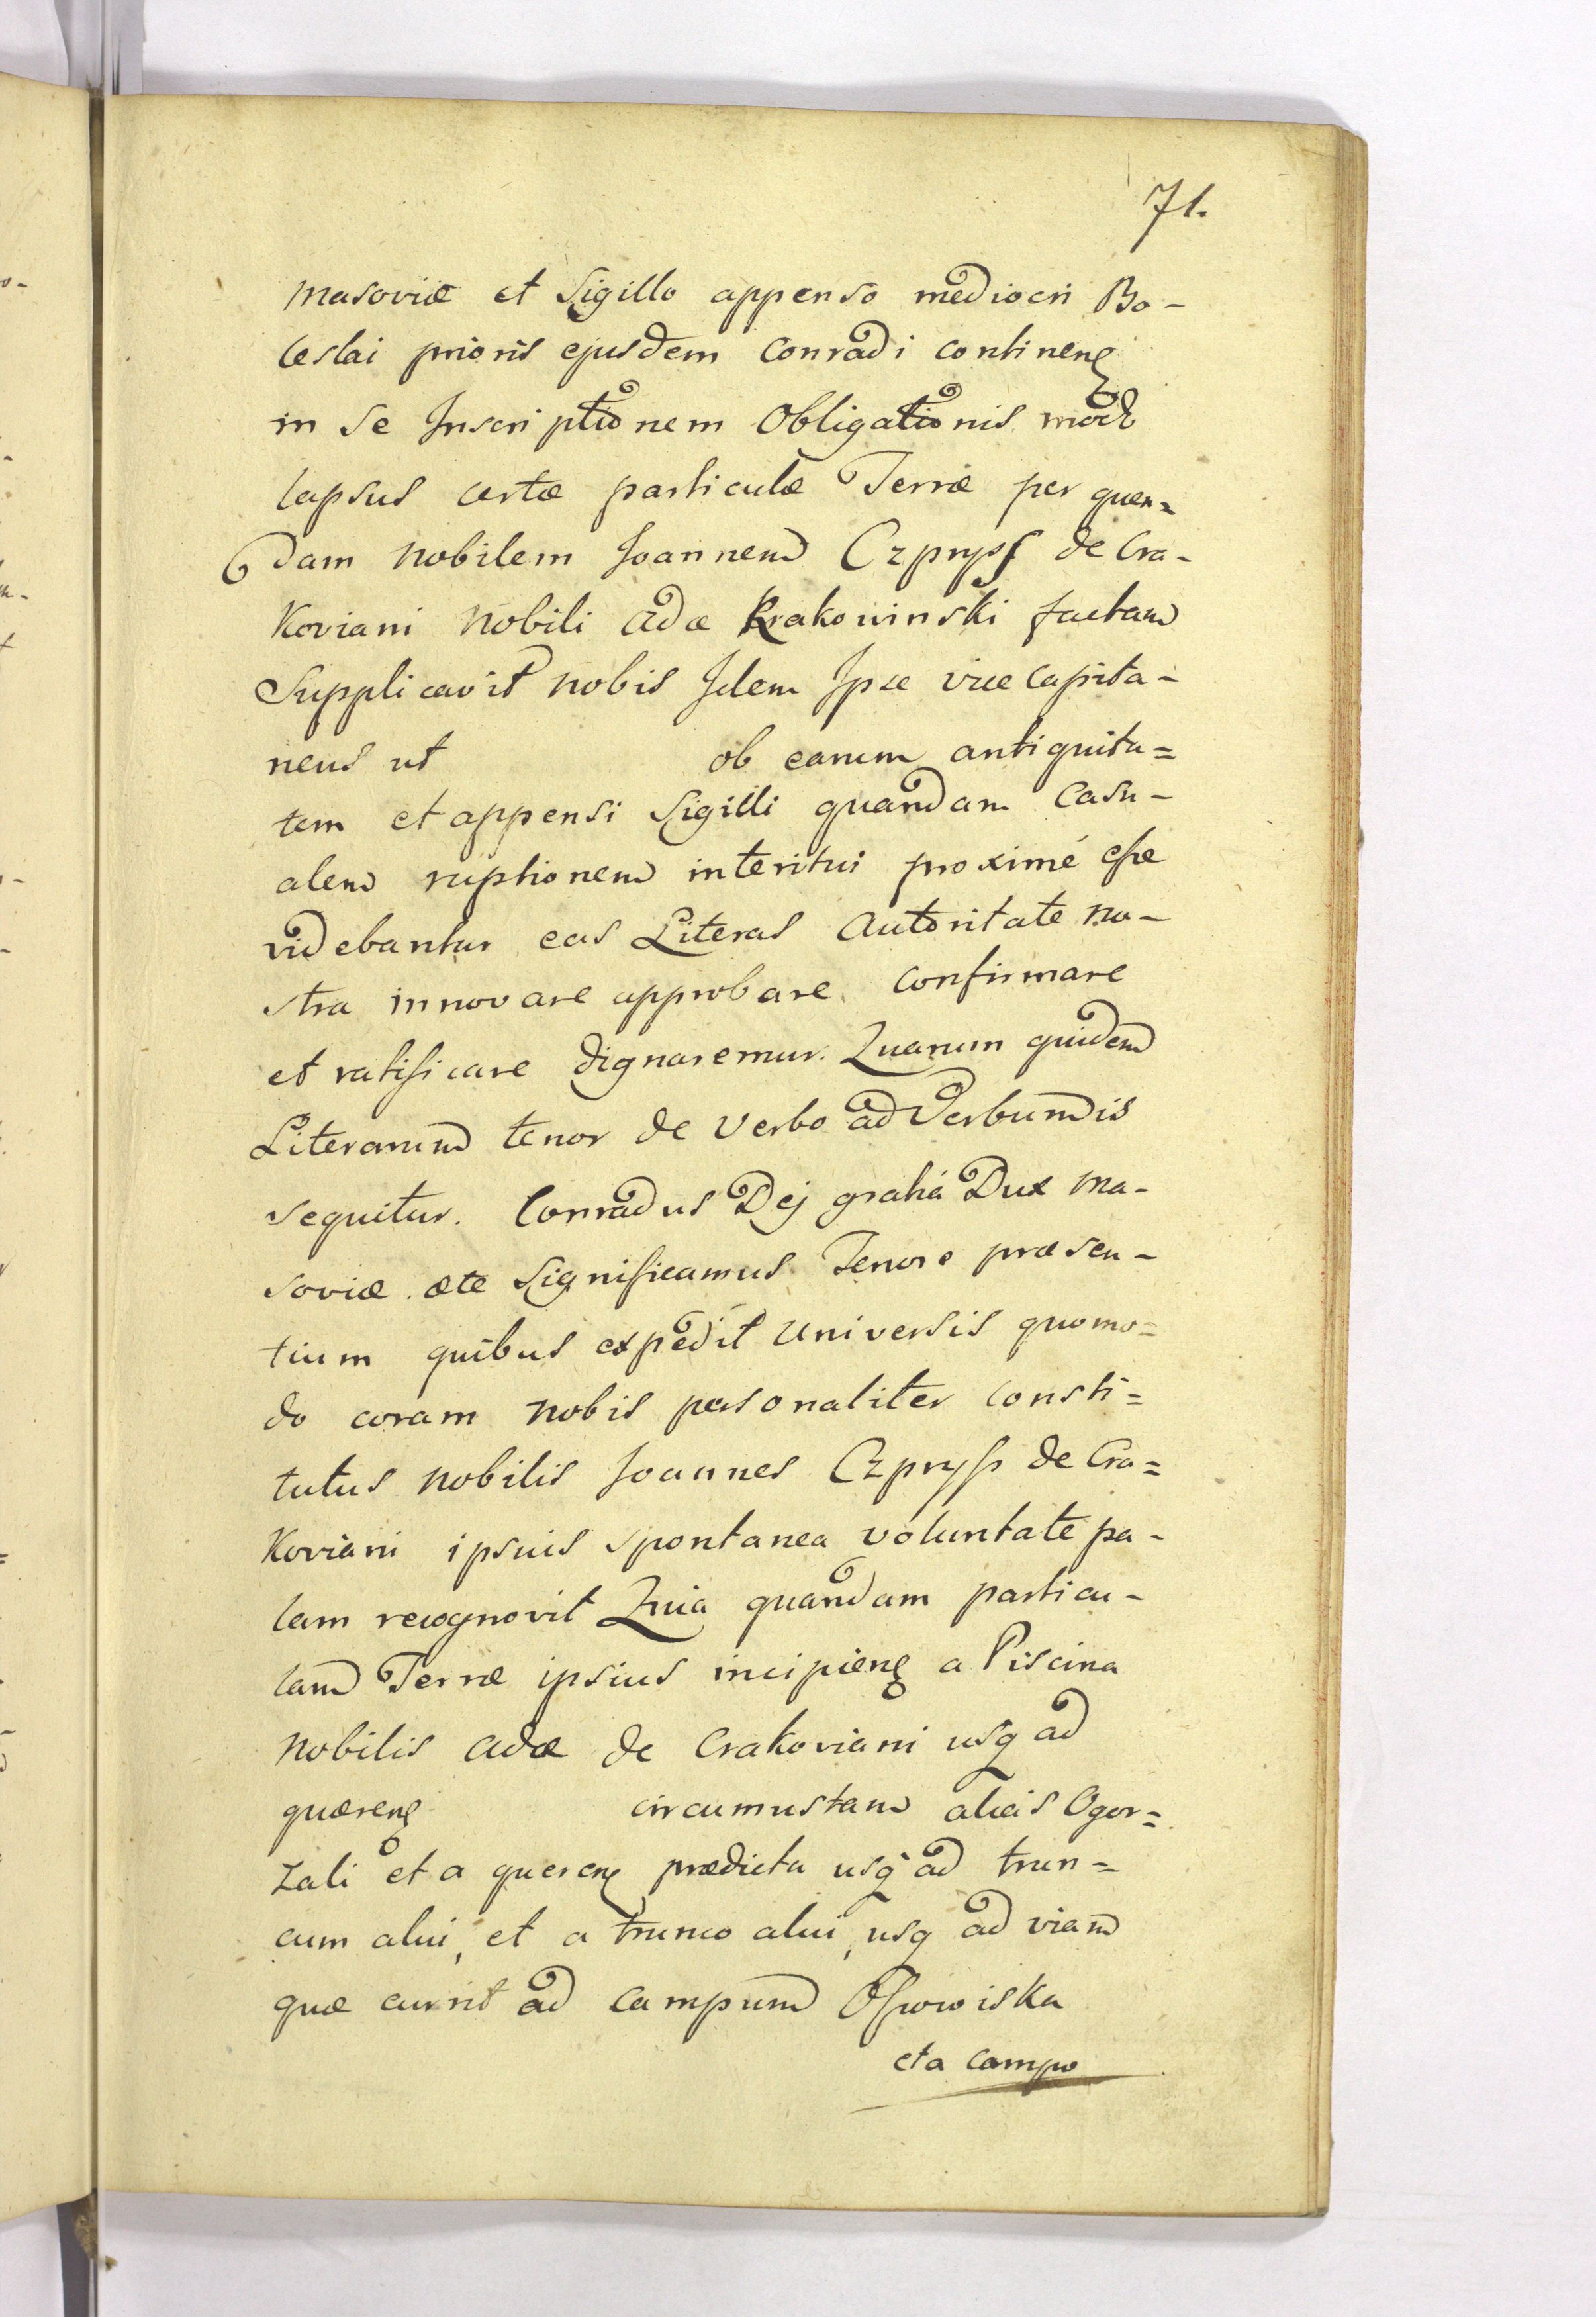 71.
Masoviæ et Sigillo appenso mediocri Bo-
leslai prioris ejusdem Conradi continenꝭ
in se Inscriptionem Obligationis mod
lapsus certæ particulæ Terræ per quen=
dam Nobilem Joannem Czpryss de Cra-
Koviani Nobili Adæ Krakowinski factam
Supplicavit Nobis Idem Ipse vice Capita-
neus ut ob earum antiquita=
tem et appensi Sigilli quandam Casu-
alem ruptionem interitui proximé esse
videbantur eas Literas Autoritate no-
stra innovare approbare Confirmare
et ratificare dignaremur. Quarum quidem
Literarum tenor de Verbo ad Verbum is
sequitur. Conradus Dej gratiá Dux Ma-
soviæ. æte Significamus Tenore præsen-
tium quibus expedit Universis quomo=
do coram Nobis personaliter Consti=
tutus Nobilis Joannes Czpryss de Cra=
Koviani ipsius spontanea voluntate pa-
lam recognovit Quia quandam particu-
lam Terræ ipsius incipienꝭ a Piscina
Nobilis Adæ de Crakoviani usq ad
quærenꝭ circumustam alias Ogor=
zali et a querenꝭ prædicta usq ad trun=
cum alni, et a trunco alni, usq ad viam
quæ currit ad Campum Ossowiska
et a Campo